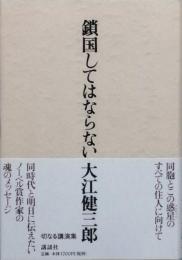 鎖国してはならない
大江健三郎
同胞とこの惑星の
すべての住人に向けて
同時代と明日に伝えたい
ノーベル賞作家の
魂のメッセージ
切なる講演集
講談社